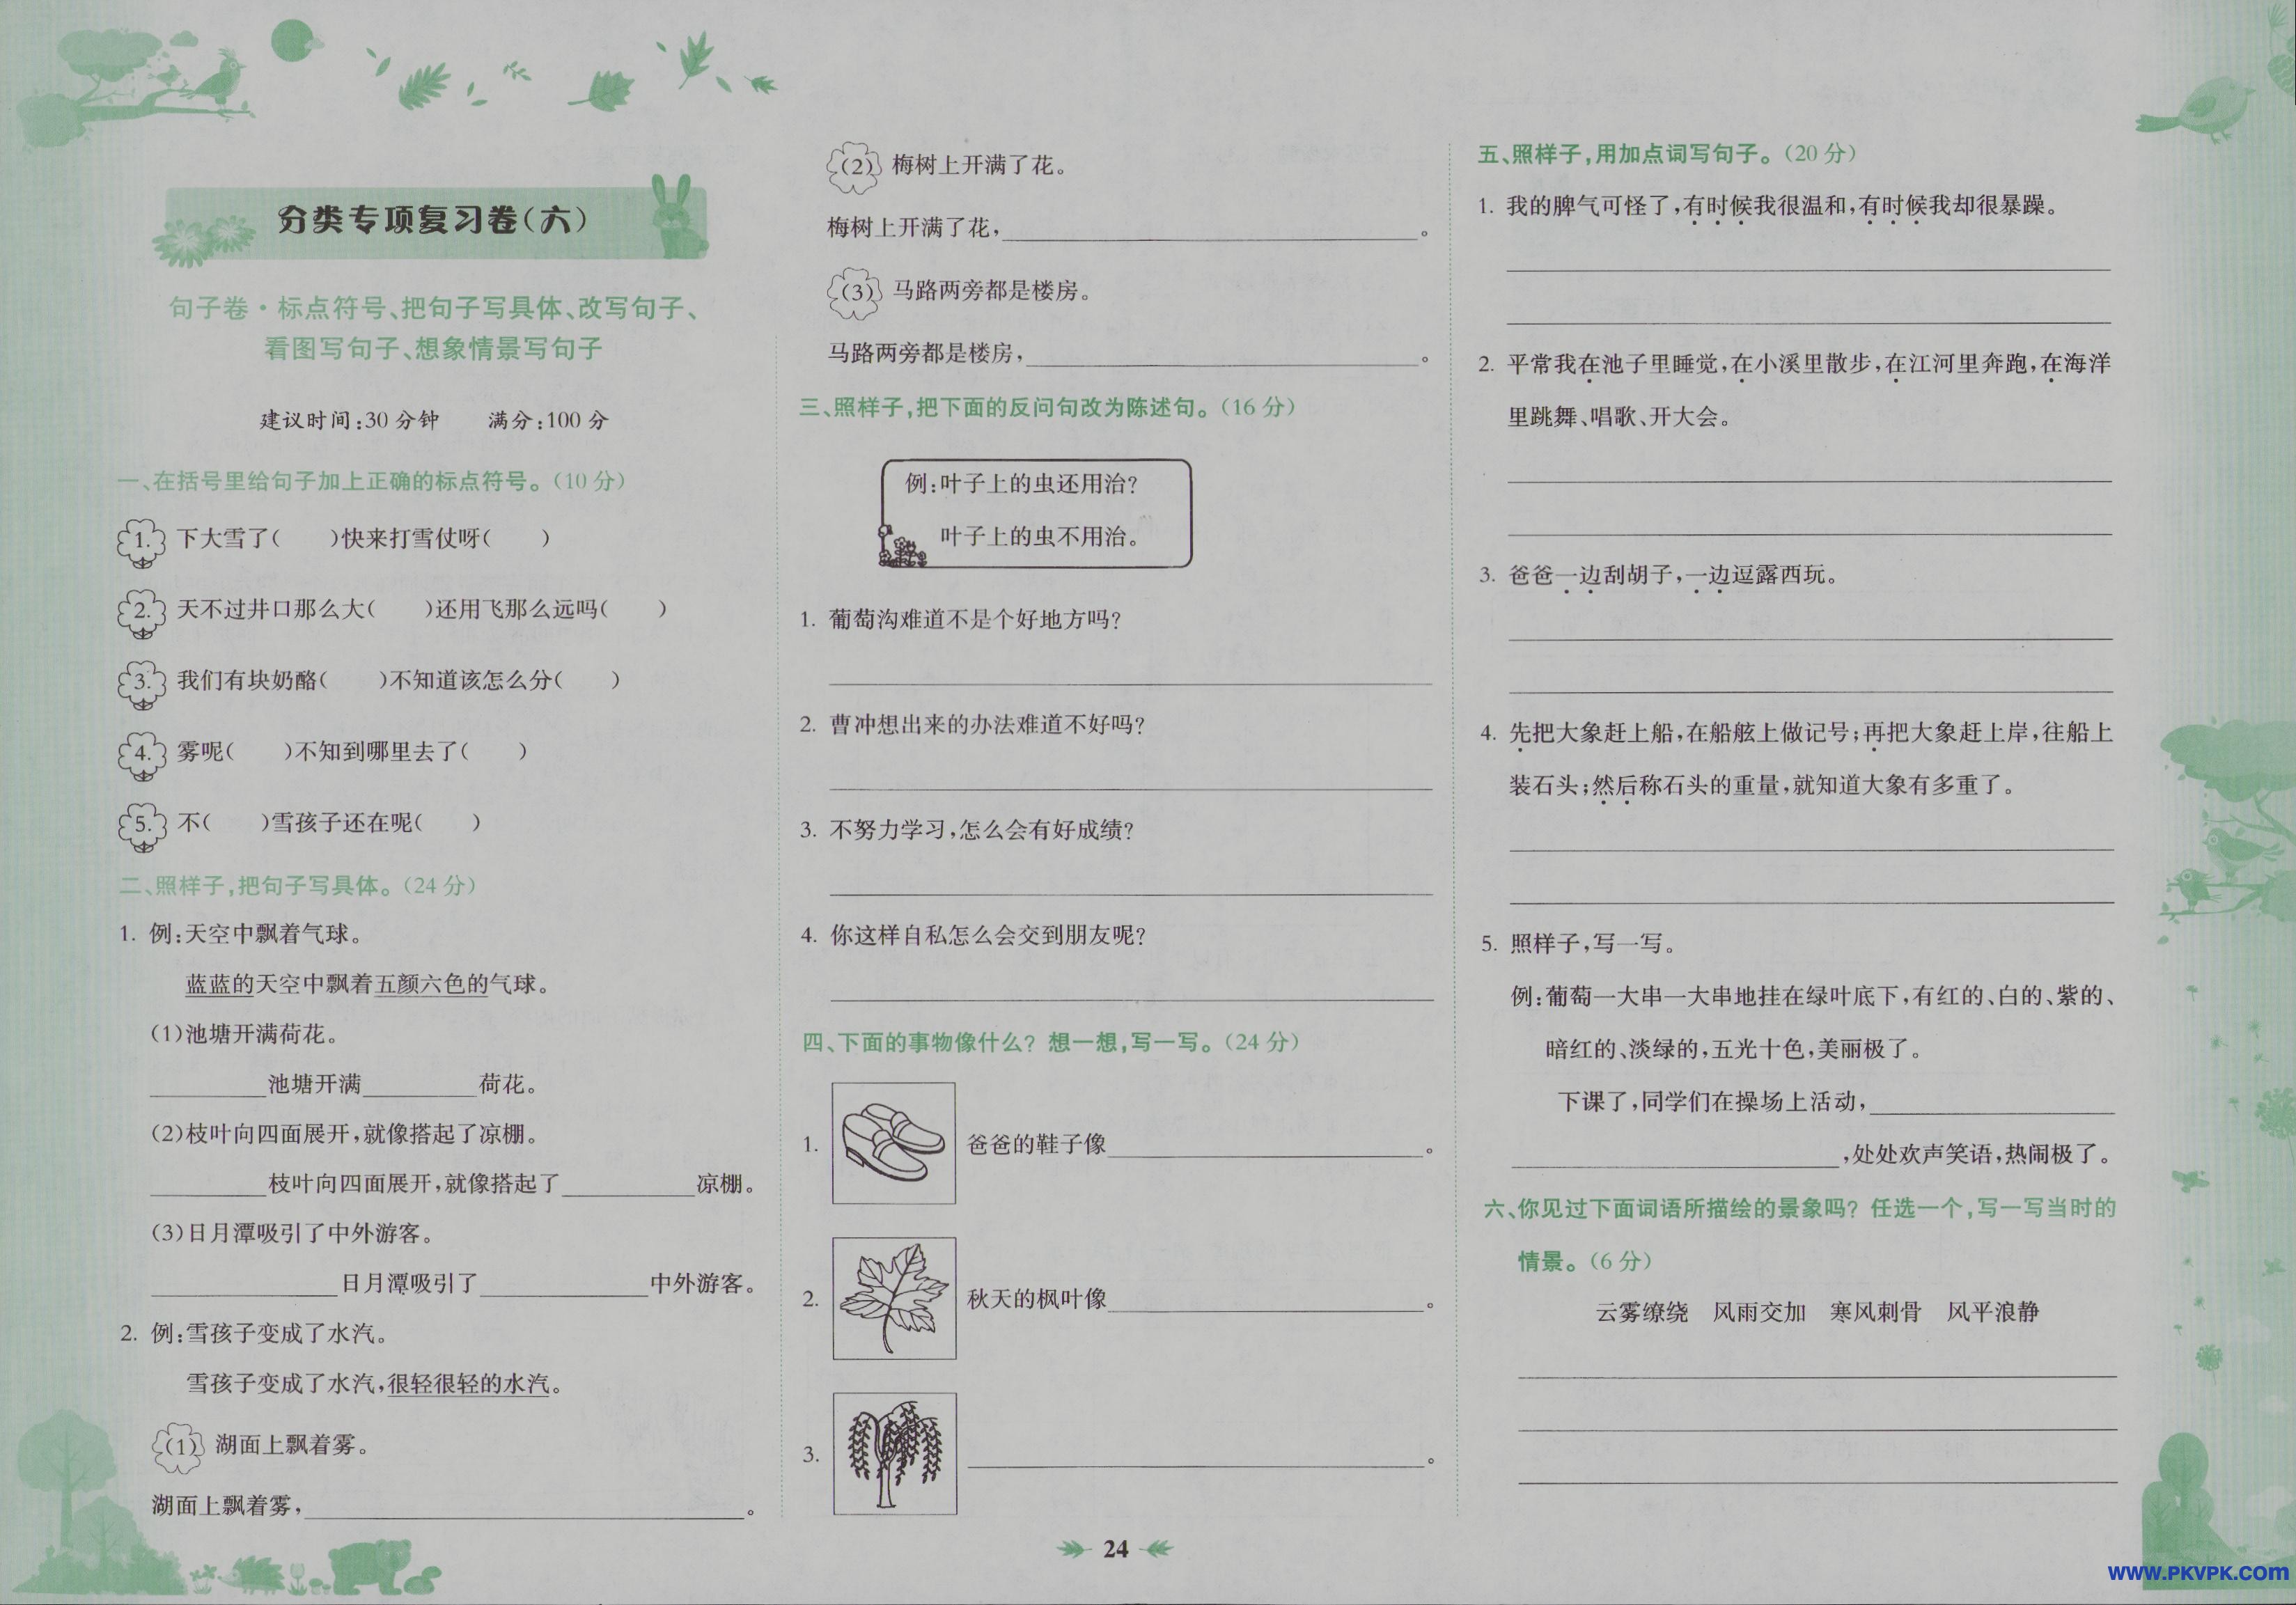 分类专项复习卷(六)
句子卷·标点符号、把句子写具体、改写句子、
看图写句子、想象情景写句子
建议时间:30分钟 满分:100分
一、在括号里给句子加上正确的标点符号。(10分)
1. 下大雪了( )快来打雪仗呀( )
2. 天不过井口那么大( )还用飞那么远吗( )
3. 我们有块奶酪( )不知道该怎么分( )
4. 雾呢( )不知到哪里去了( )
5. 不( )雪孩子还在呢( )
二、照样子,把句子写具体。(24分)
1. 例:天空中飘着气球。
蓝蓝的天空中飘着五颜六色的气球。
(1)池塘开满荷花。
________池塘开满________荷花。
(2)枝叶向四面展开,就像搭起了凉棚。
________枝叶向四面展开,就像搭起了________凉棚。
(3)日月潭吸引了中外游客。
________日月潭吸引了________中外游客。
2. 例:雪孩子变成了水汽。
雪孩子变成了水汽,很轻很轻的水汽。
(1) 湖面上飘着雾。
湖面上飘着雾,________。
(2) 梅树上开满了花。
梅树上开满了花,________。
(3) 马路两旁都是楼房。
马路两旁都是楼房,________。
三、照样子,把下面的反问句改为陈述句。(16分)
例:叶子上的虫还用治?
叶子上的虫不用治。
1. 葡萄沟难道不是个好地方吗?
2. 曹冲想出来的办法难道不好吗?
3. 不努力学习,怎么会有好成绩?
4. 你这样自私怎么会交到朋友呢?
四、下面的事物像什么? 想一想,写一写。(24分)
1. 爸爸的鞋子像________。
2. 秋天的枫叶像________。
3. ________。
五、照样子,用加点词写句子。(20分)
1. 我的脾气可怪了,有时候我很温和,有时候我却很暴躁。
2. 平常我在池子里睡觉,在小溪里散步,在江河里奔跑,在海洋
里跳舞、唱歌、开大会。
3. 爸爸一边刮胡子,一边逗露西玩。
4. 先把大象赶上船,在船舷上做记号;再把大象赶上岸,往船上
装石头;然后称石头的重量,就知道大象有多重了。
5. 照样子,写一写。
例:葡萄一大串一大串地挂在绿叶底下,有红的、白的、紫的、
暗红的、淡绿的,五光十色,美丽极了。
下课了,同学们在操场上活动,________
________,处处欢声笑语,热闹极了。
六、你见过下面词语所描绘的景象吗? 任选一个,写一写当时的
情景。(6分)
云雾缭绕 风雨交加 寒风刺骨 风平浪静
24
www.PKVPK.com